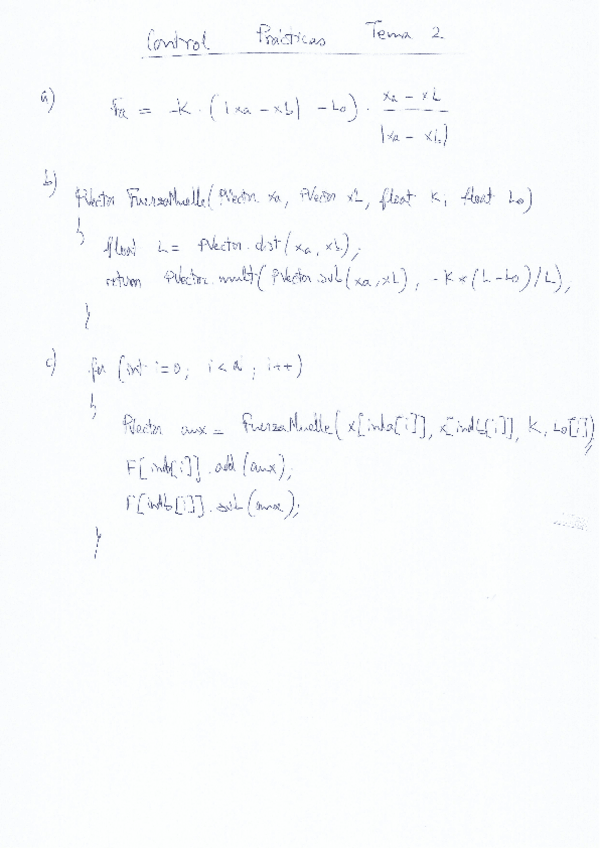 Control Prácticas Tema 2
a) Fa = -K · (|xa - xb| - L0) · xa - xb
|xa - xb|
b) PVector FuerzaMuelle(PVector xa, PVector xb, float K, float L0)
{
float L = PVector.dist(xa, xb);
return PVector.mult(PVector.sub(xa, xb), -K*(L-L0)/L);
}
c) for (int i=0; i<a; i++)
{
PVector aux = FuerzaMuelle(x[inda[i]], x[indb[i]], K, L0[i]);
F[inda[i]].add(aux);
F[indb[i]].sub(aux);
}